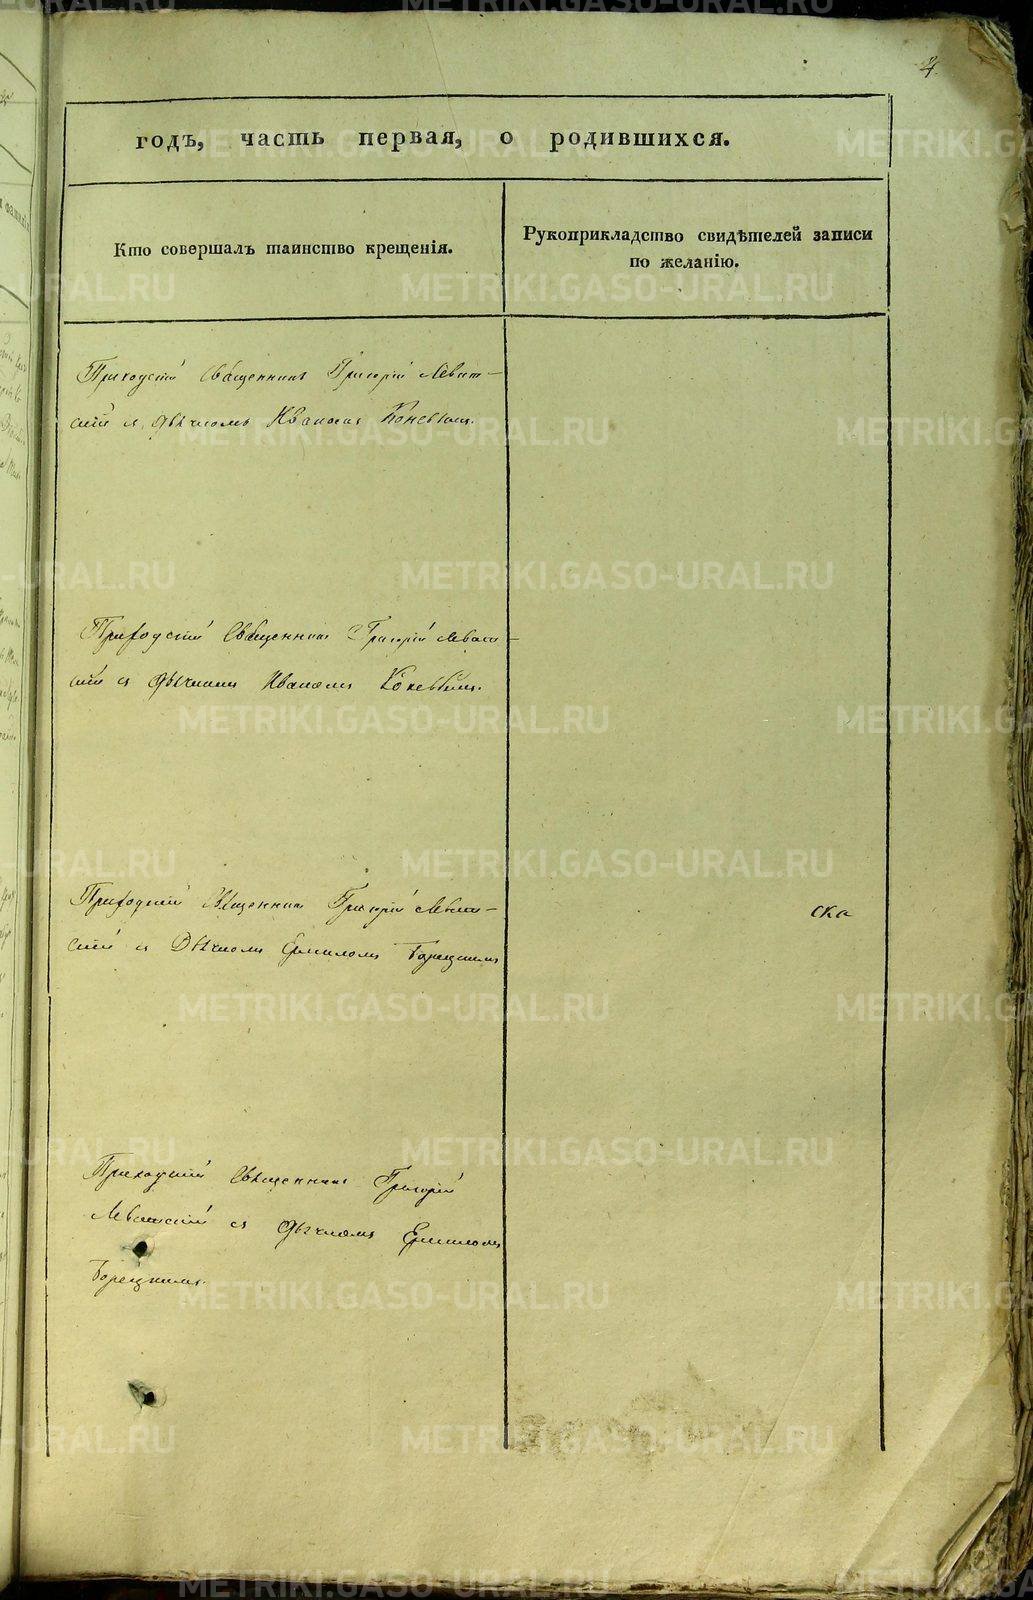 4
годъ, часть первая, о родившихся.
Кто совершалъ таинство крещенія.
Рукоприкладство свидѣтелей записи
по желанію.
Приходскій Священникъ Григорій Леват-
скій съ Дьячкомъ Иваномъ Коневымъ.
Приходскій Священникъ Григорій Леват-
скій съ Дьячкомъ Иваномъ Коневымъ.
Приходскій Священникъ Григорій Леват-
скій съ Дьячкомъ Ермиломъ Борецкимъ
ска
Приходскій Священникъ Григорій
Леватскій съ Дьячкомъ Ермиломъ
Борецкимъ.
METRIKI.GASO-URAL.RU